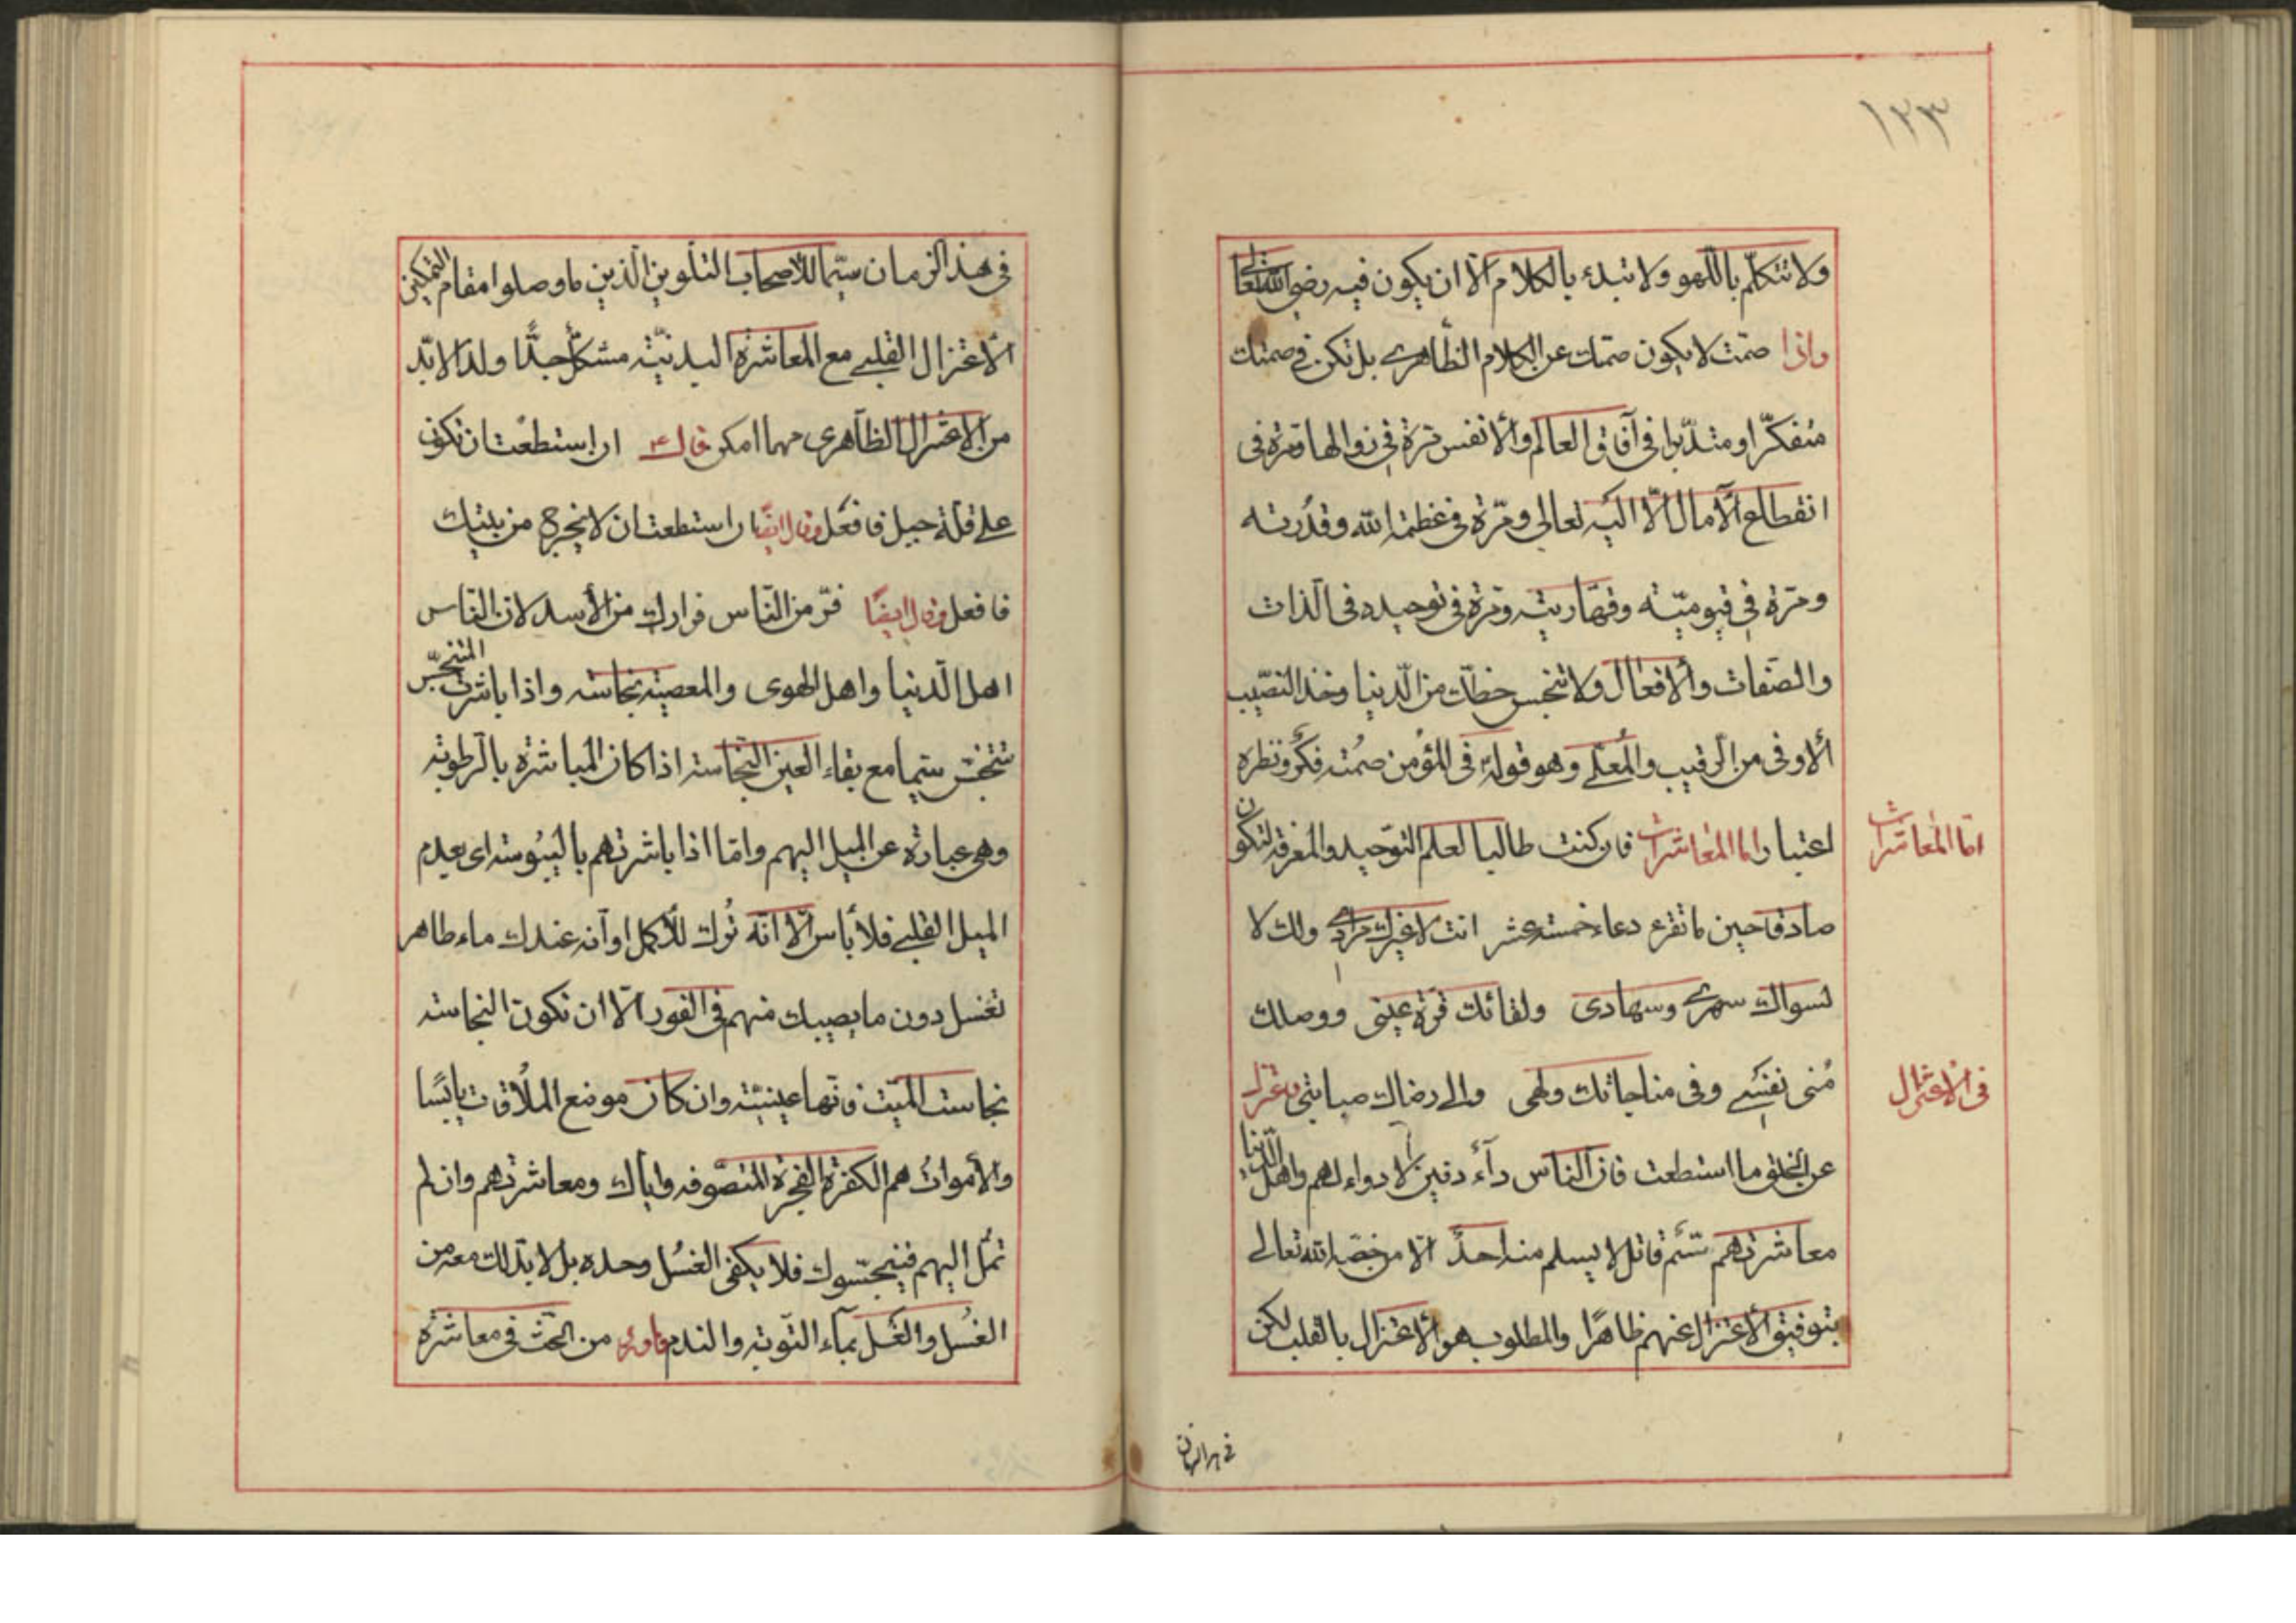 ١٢٣
ولا تتكلّم باللّهو ولا تبدء بالكلام الّا ان يكون فيه رضى الله تعالى
واذا صمتّ لا يكون صمتك عن الكلام الظّاهرى بل تكن فى صمتك
متفكّرا ومتدبّرا فى آفاق العالم والأنفس مرّة فى زوالها ومرّة فى
انقطاع الآمال الّا اليه تعالى ومرّة فى عظمة الله وقدرته
ومرّة فى قيوميّته وقهّاريته ومرّة فى توحيده فى الذات
والصّفات والافعال ولا تنجس حظّك من الدّنيا وخذ النصّيب
الأوفى من الرقيب والمعلّى وهو قوله فى المؤمن صمته فكر ونظره
اعتبار اما المعاشرات فان كنت طالبا لعلم التوّحيد والمعرفة لتكون
امّا المعاشرات
صادقا حين ما تقرء دعاء خمسة عشر انت لا غيرك مرادى ولك لا
لسواك سهرى وسهادى ولقائك قرّة عينى ووصلك
مُنى نفسى وفى مناجاتك ولهى والى رضاك صبابتى فاعتزل
فى الاعتزال
عن الخلق ما استطعت فان الناس دآء دفين لا دواء لهم واهل الدّنيا
معاشرتهم سّم قاتل لا يسلم منه احدٌ الّا من خصّه الله تعالى
بتوفيق الاعتزال عنهم ظاهرًا والمطلوب هو الاعتزال بالقلب لكن
فى هذا الزمان
فى هذا الزمان سيّما للأصحاب التلوين الّذين ما وصلوا مقام التمكين
الاعتزال القلبى مع المعاشرة البدنيّة مشكلٌ جدًّا ولذا لابّد
من الاعتزال الظاهرى مهما امكن قال ان استطعت ان تكون
على قلّة جبل فافعل وقال ايضًا ان استطعت ان لا تخرج من بيتك
فافعل وقال ايضًا فرّ من النّاس فرارك من الأسد لان النّاس
اهل الدّنيا واهل الهوى والمعصية نجاسة واذا باشرت المتنجّس
تتنجّس سيّما مع بقاء العين النّجاسة اذا كان المباشرة بالرطوبة
وهى عبارة عن الميل اليهم وامّا اذا باشرتهم باليبوسة اى بعدم
الميل القلبى فلا بأس الّا انّه تُرك للأكمل او انه عندك ماء طاهر
تغسل دون ما يصيبك منهم فى الفور الّا ان تكون النجاسة
نجاست الميّت فانّها عينيّة وان كان موضع الملاقات يابسًا
والأموات هم الكفرة الفجرة المتصّوفه واياك ومعاشرتهم وان لم
تمل اليهم فينجّسوك فلا يكفى الغسل وحده بل لابّد لك معه من
الغسُل والغَسل بمآء التّوبة والندم من الحّث فى معاشرة